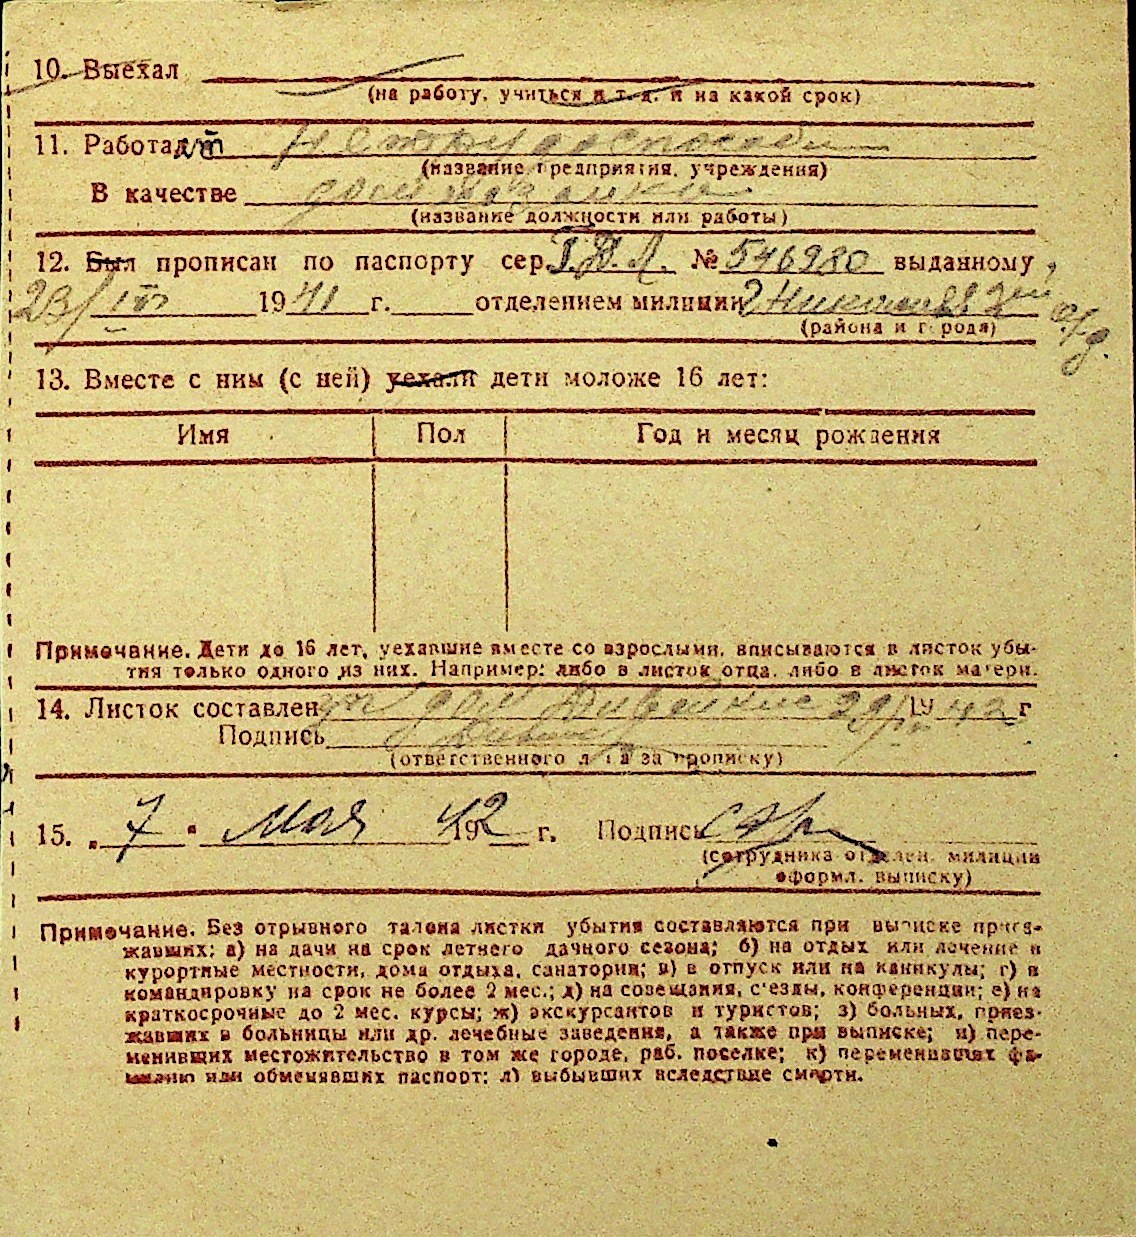 10. Выехал
(на работу, учиться и т. д. и на какой срок)
11. Работал
(название предприятия, учреждения)
В качестве домхозяйки
(название должности или работы)
12. Был прописан по паспорту сер. № 546980 выданному
23/III 1941 г. отделением милиции г Николаев 2
(района и города)
13. Вместе с ним (с ней) уехали дети моложе 16 лет:
Имя Пол Год и месяц рождения
Примечание. Дети до 16 лет, уехавшие вместе со взрослыми, вписываются в листок убы-
тия только одного из них. Например: либо в листок отца, либо в листок матери.
14. Листок составлен 1942 г
Подпись
(ответственного лица за прописку)
15. „ 7 " мая 1942 г. Подпись
(сотрудника отделен. милиции
оформл. выписку)
Примечание. Без отрывного талона листки убытия составляются при выписке приез-
жавших: а) на дачи на срок летнего дачного сезона; б) на отдых или лечение в
курортные местности, дома отдыха, санатории; в) в отпуск или на каникулы; г) в
командировку на срок не более 2 мес.; д) на совещания, с'езды, конференции; е) на
краткосрочные до 2 мес. курсы; ж) экскурсантов и туристов; з) больных, приез-
жавших в больницы или др. лечебные заведения, а также при выписке; и) пере-
менивших местожительство в том же городе, раб. поселке; к) переменивших фа-
милию или обменявших паспорт; л) выбывших вследствие смерти.